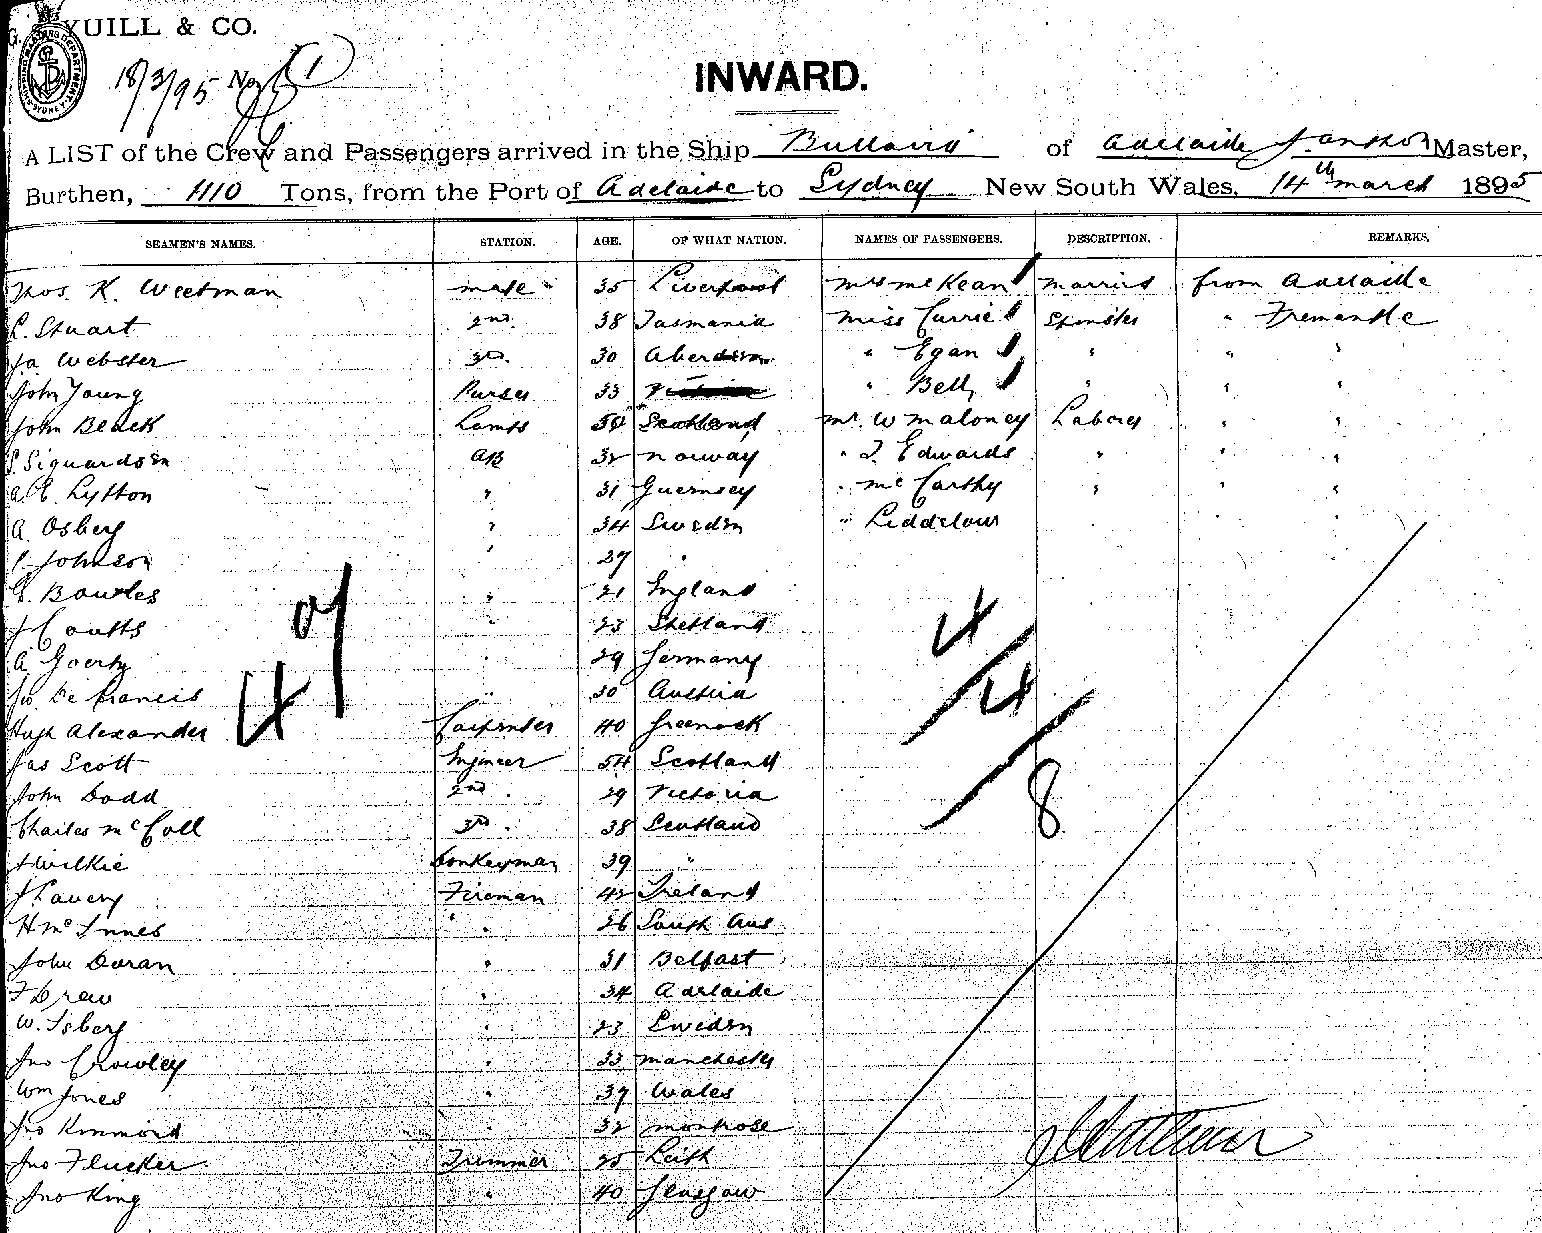 G. YUILL & CO.
SHIPPING MASTERS DEPARTMENT SYDNEY
18/3/95 No (1)
INWARD.
A LIST of the Crew and Passengers arrived in the Ship Bullarra of Adelaide Master,
Burthen, 1110 Tons, from the Port of Adelaide to Sydney New South Wales, 14th march 1895
SEAMEN'S NAMES. STATION. AGE. OF WHAT NATION. NAMES OF PASSENGERS. DESCRIPTION. REMARKS.
Thos. K. Weetman mate " 35 Liverpool Mrs McKean married from Adelaide
C. Stuart 2nd. 38 Tasmania Miss Currie Spinster " Fremantle
Ja Webster 3rd. 30 Aberdeen " Egan " " "
John Young Purser 33 Victoria " Bell " " "
John Black Lamps Scotland Mr. W Maloney Laborer " "
Siguardsen AB 32 Norway " T. Edwards " " "
A E. Lytton " 31 Guernsey " McCarthy " " "
A. Osberg " 34 Sweden " Liddelow " "
Johnson " 27 "
Bowles " 21 England
J Coutts " 23 Shetland
A. Goerty " 29 Germany
Jno De Francis " 30 Austria
Hugh Alexander Carpenter 40 Greenock
Jas Scott Engineer 54 Scotland
John Dodd 2nd. 29 Victoria
Charles McColl 3rd. 38 Scotland
J Wilkie Donkeyman 39 "
J Lavery Fireman 42 Ireland
H McInnes " 26 South Aus
John Doran " 31 Belfast
F Drew " 34 Adelaide
W. Isberg " 23 Sweden
Jno Crowley " 33 Manchester
Wm Jones " 37 Wales
Jno Kinmond " 32 Montrose
Jno Flucker Trimmer 25 Leith
Jno King " 40 Glasgow
4
4
8